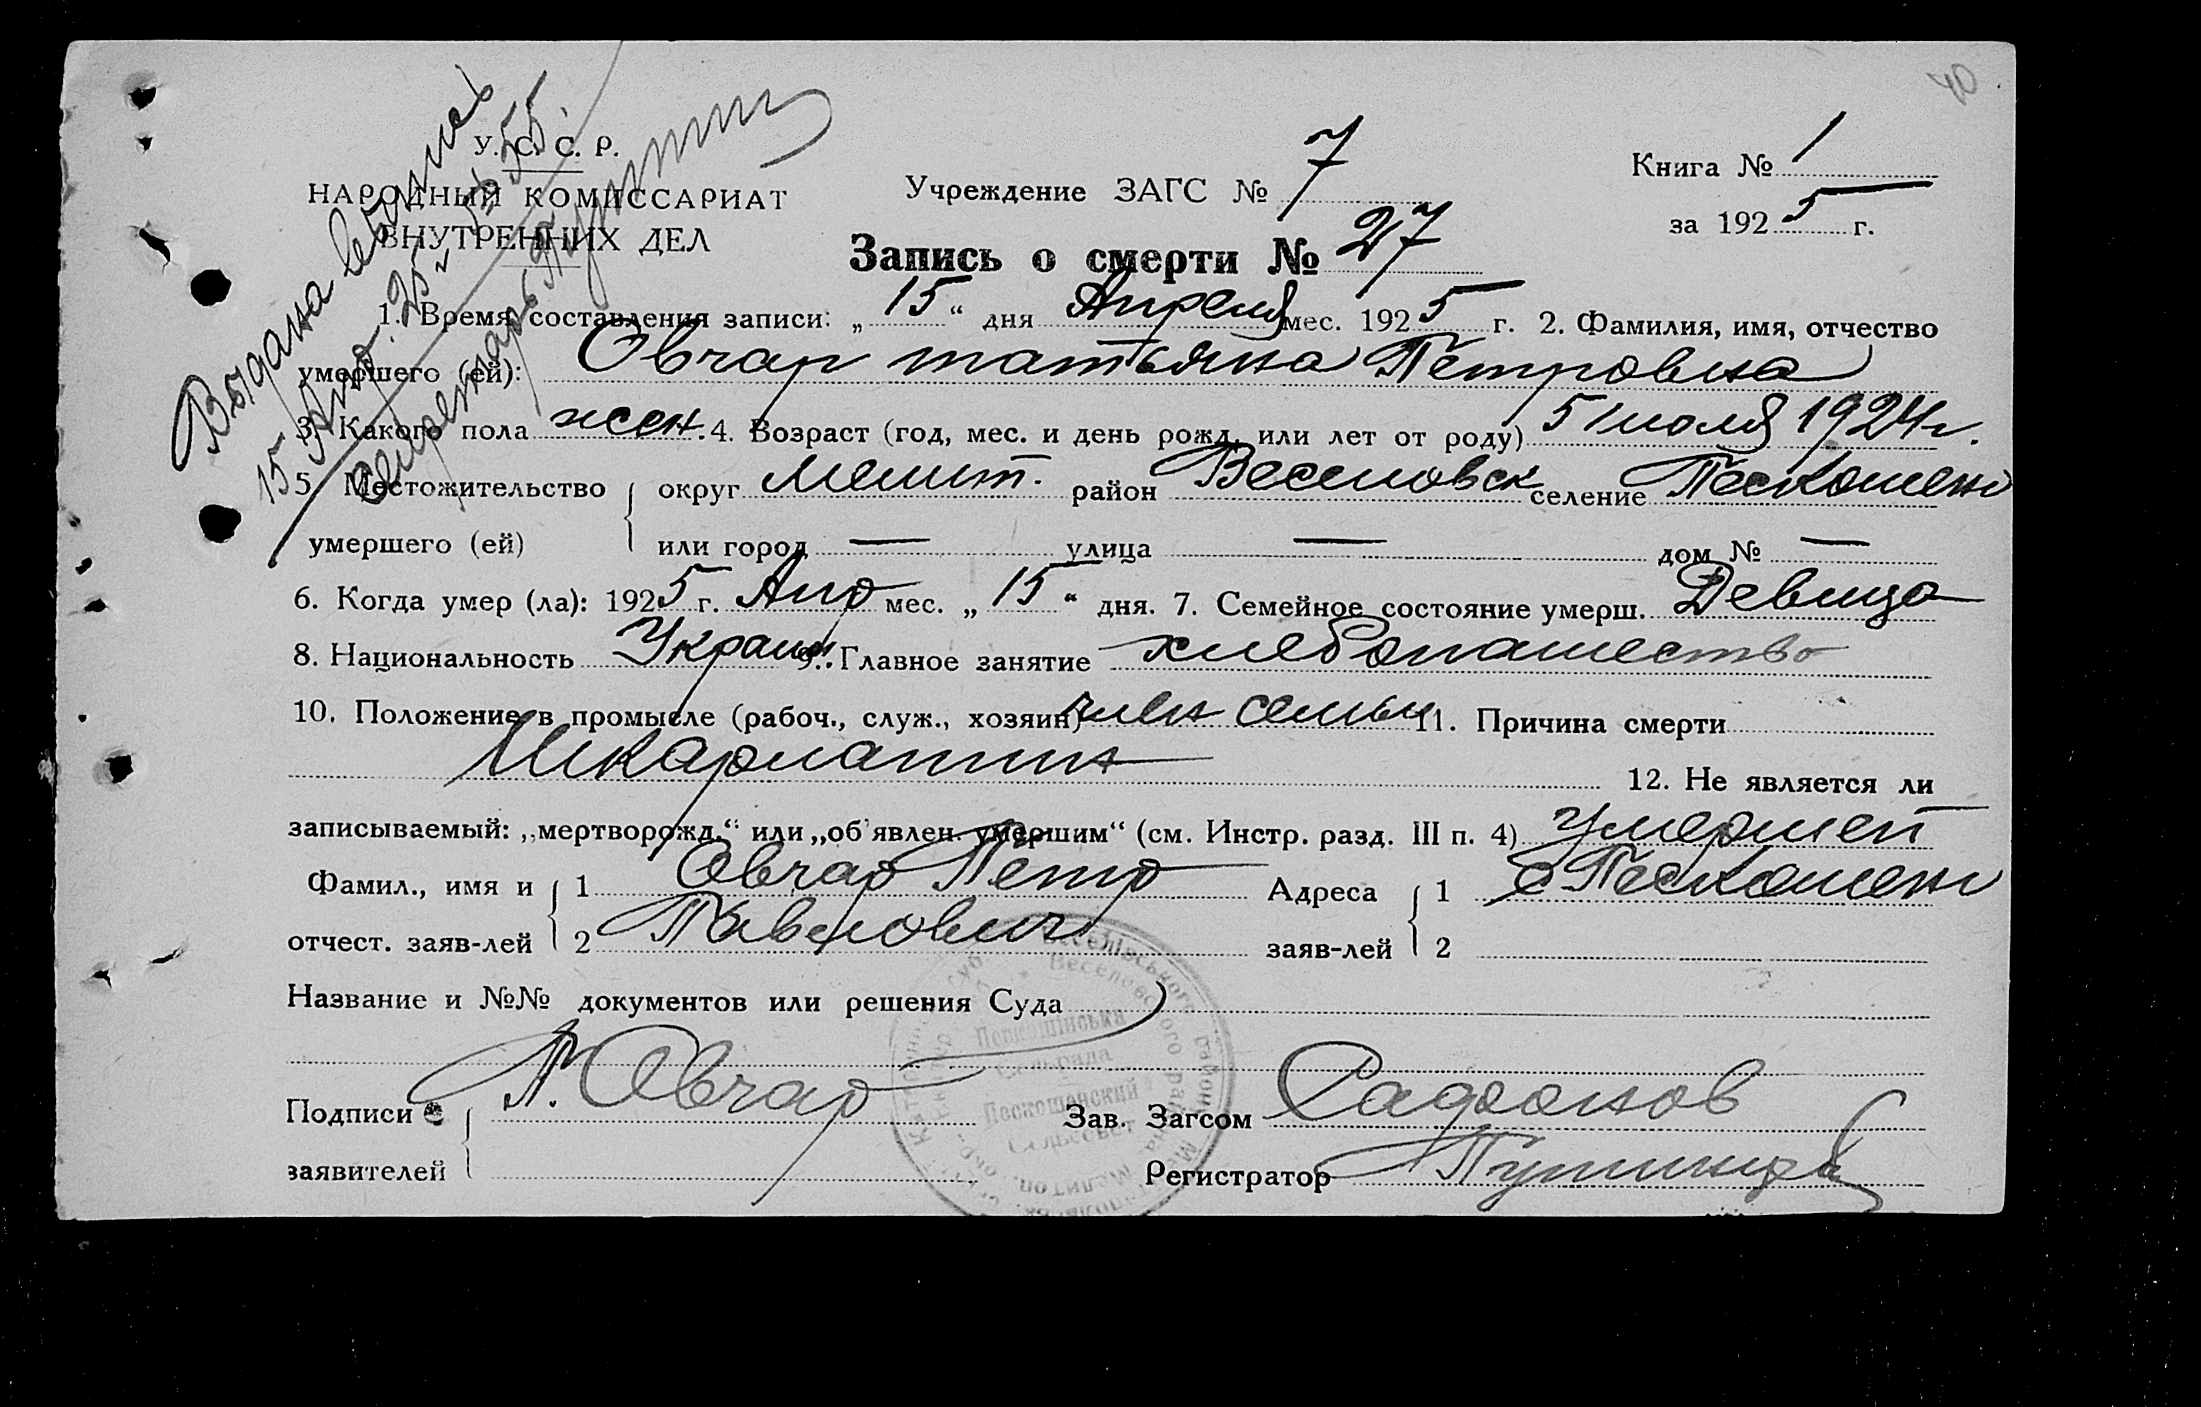 40
У. С. С. Р.
НАРОДНЫЙ КОМИССАРИАТ
ВНУТРЕННИХ ДЕЛ
Учреждение ЗАГС № 7
Книга № 1
за 1925 г.
Запись о смерти № 27
Выдана
15 Апр. 25 г. № 355.
Секретарь
1. Время составления записи: „15“ дня Апреля мес. 1925 г. 2. Фамилия, имя, отчество
умершего (ей): Овчар татьяна Петровна
3. Какого пола жен. 4. Возраст (год, мес. и день рожд. или лет от роду) 5 июля 1924 г.
5. Местожительство округ Мелит. район Веселовск селение Пескошено
умершего (ей) или город — улица — дом № —
6. Когда умер (ла): 1925 г. Апр мес. „15“ дня. 7. Семейное состояние умерш. Девица
8. Национальность Украин 9. Главное занятие хлебопашество
10. Положение в промысле (рабоч., служ., хозяин) член семьи 11. Причина смерти
Шкарлатин
12. Не является ли
записываемый: „мертворожд.“ или „об'явлен. умершим“ (см. Инстр. разд. III п. 4) умершей
Фамил., имя и 1 Овчар Петр Адреса 1 с Пескошено
отчест. заяв-лей 2 Павлович заяв-лей 2
Название и №№ документов или решения Суда
Подписи П. Овчар Зав. Загсом Сафонов
заявителей Регистратор
Пескошінська
Сельрада
Пескошенский
Сельсовет